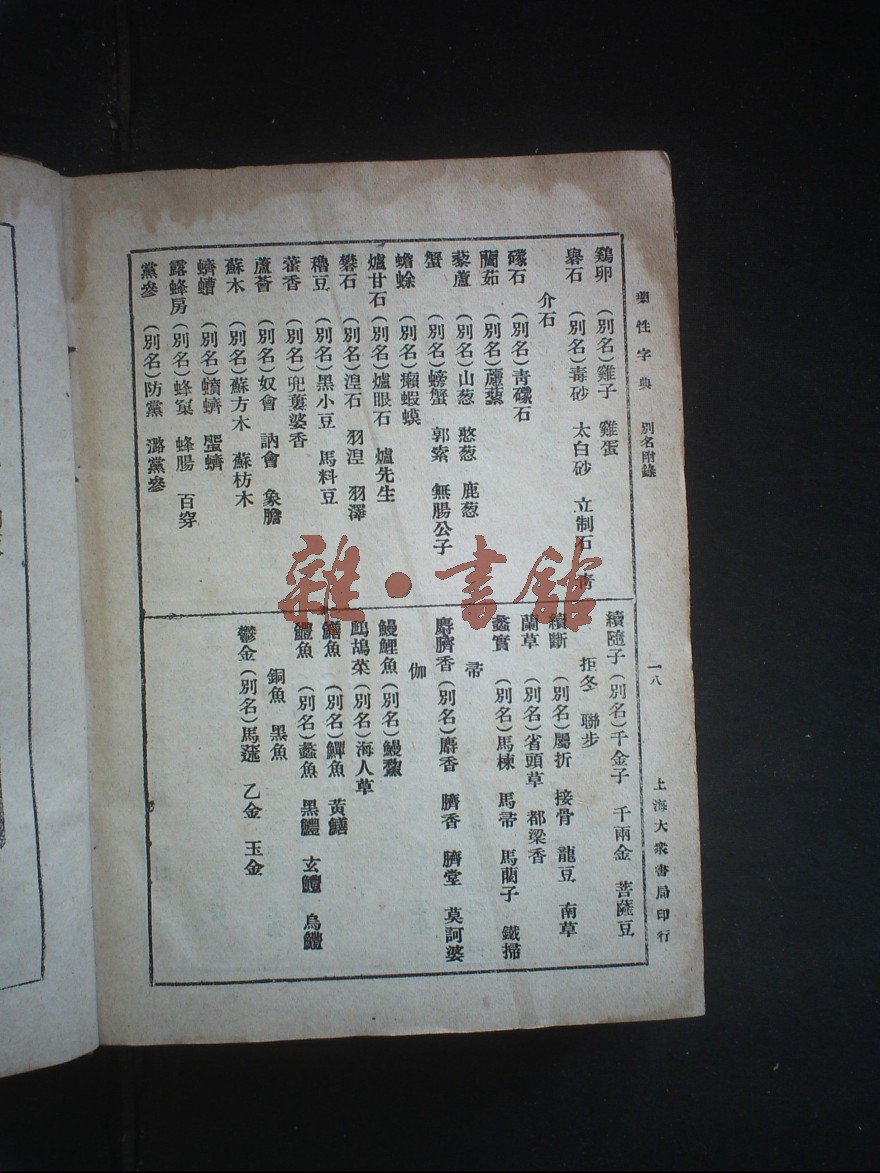 藥性字典 別名附錄 一八 上海大衆書局印行
鷄卵 (別名)雞子 雞蛋
礜石 (別名)毒砂 太白砂 立制石 青
介石
礞石 (別名)青礞石
藺茹 (別名)蘆
藜蘆 (別名)山葱 憨葱 鹿葱
蟹 (別名)螃蟹 郭索 無腸公子
蟾蜍 (別名)癩蝦蟆
爐甘石 (別名)爐眼石 爐先生
礬石 (別名)湼石 羽湼 羽澤
穭豆 (別名)黑小豆 馬料豆
藿香 (別名)兜蔞婆香
蘆薈 (別名)奴會 訥會 象膽
蘇木 (別名)蘇方木 蘇枋木
蠐螬 (別名)蟦蠐 蜰蠐
露蜂房 (別名)蜂窠 蜂腸 百穿
黨參 (別名)防黨 潞黨參
續隨子 (別名)千金子 千兩金 菩薩豆
拒冬 聯步
續斷 (別名)屬折 接骨 龍豆 南草
蘭草 (別名)省頭草 都梁香
蠡實 (別名)馬楝 馬帚 馬藺子 鐵掃
帚
麝臍香 (別名)麝香 臍香 臍堂 莫訶婆
伽
鰻鯉魚 (別名)鰻鱺
鷓鴣菜 (別名)海人草
鱔魚 (別名)鱓魚 黃鱔
鱧魚 (別名)蠡魚 黑鱧 玄鱧 烏鱧
銅魚 黑魚
鬱金 (別名)馬蒁 乙金 玉金
雜·書館